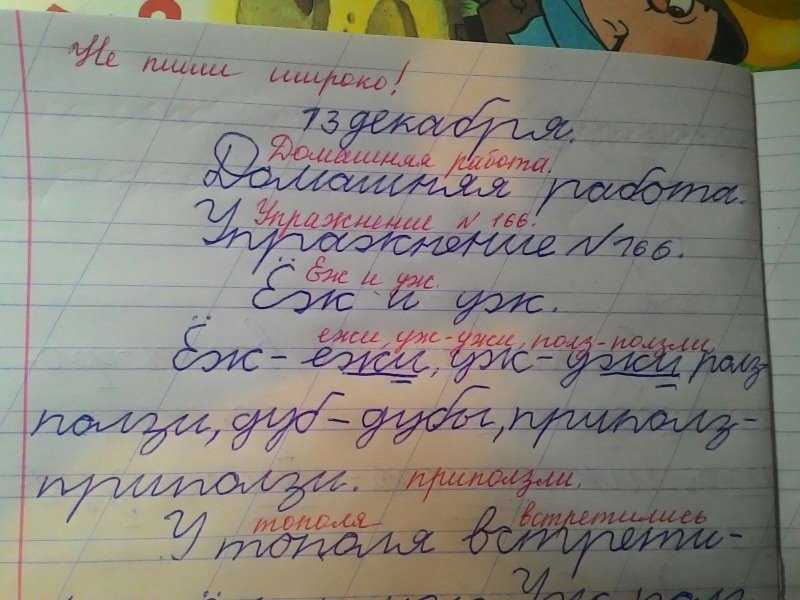 Не пиши широко!
13 декабря.
Домашняя работа.
Домашняя работа.
Упражнение № 166.
Упражнение № 166.
Еж и уж.
Ёж и уж.
ежи, уж-ужи, полз-ползли,
Ёж - ежи, уж - ужи, полз-
ползи, дуб - дубы, приполз-
приползи. приползли.
тополя встретились
У тополя встрети-